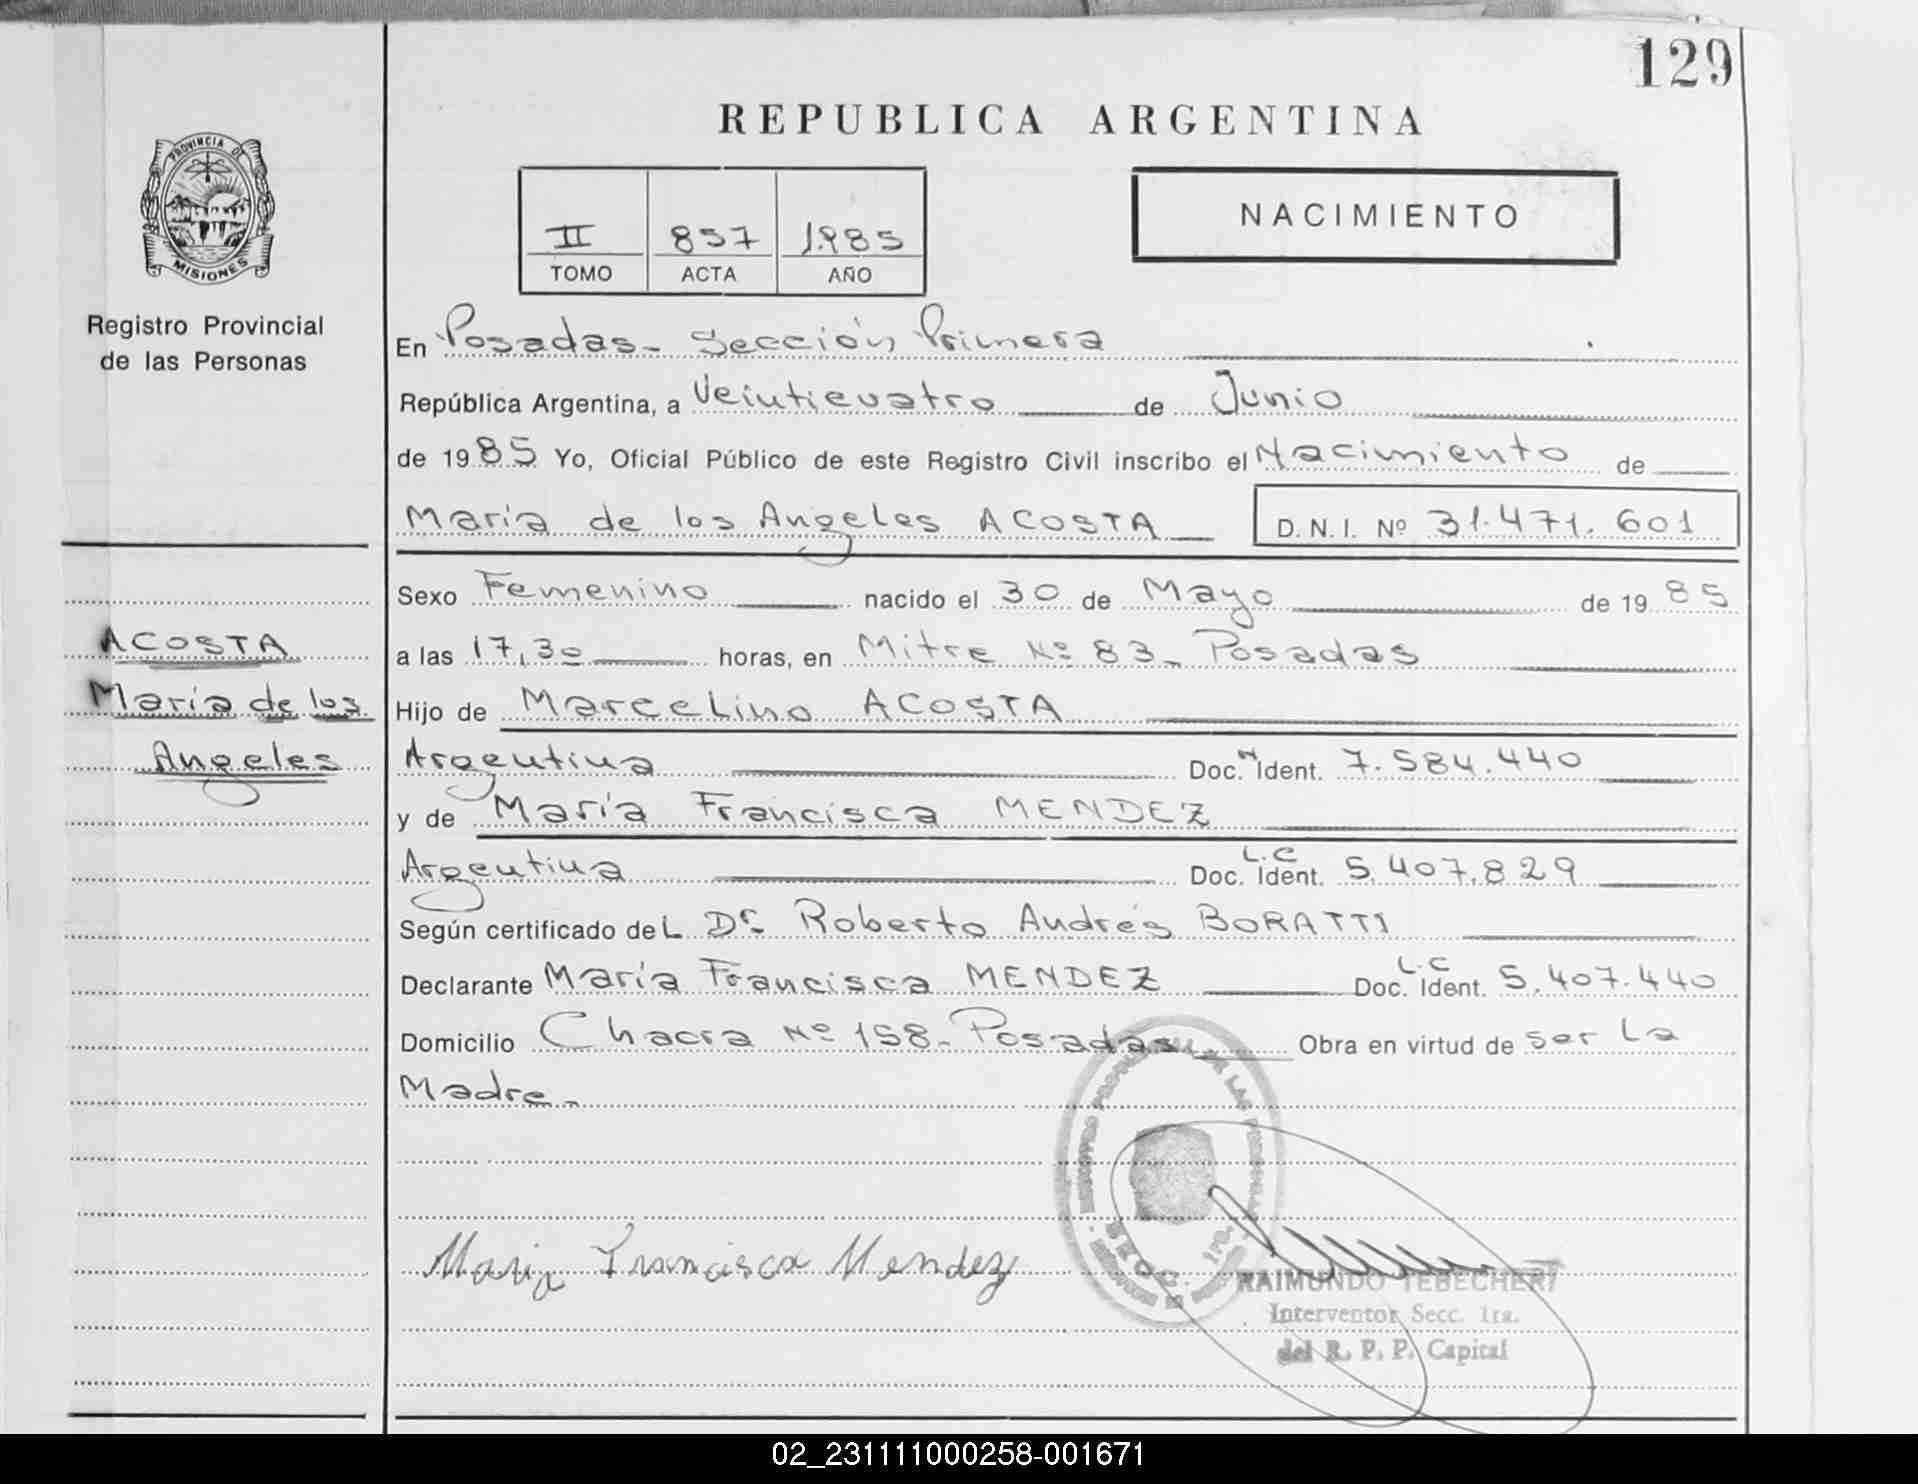 129
REPUBLICA ARGENTINA
PROVINCIA DE
MISIONES
Registro Provincial
de las Personas
II 857 1985
TOMO ACTA AÑO
NACIMIENTO
En Posadas- Sección Primera
República Argentina, a Veinticuatro de Junio
de 1985 Yo, Oficial Público de este Registro Civil inscribo el Nacimiento de
María de los Angeles ACOSTA D.N.I. Nº 31.471.601
Sexo Femenino nacido el 30 de Mayo de 1985
ACOSTA
María de los
Angeles
a las 17,30 horas, en Mitre Nº 83- Posadas
Hijo de Marcelino ACOSTA
Argentina Doc. Ident. 7.584.440
y de María Francisca MENDEZ
Argentina L.C Doc. Ident. 5.407.829
Según certificado del Dr. Roberto Andrés BORATTI
Declarante María Francisca MENDEZ L.C Doc. Ident. 5.407.440
Domicilio Chacra Nº 158- Posadas Obra en virtud de ser la
Madre-
Maria Francisca Mendez
RAIMUNDO TEBECHERI
Interventor Secc. 1ra.
del R. P. P. Capital
02_231111000258-001671